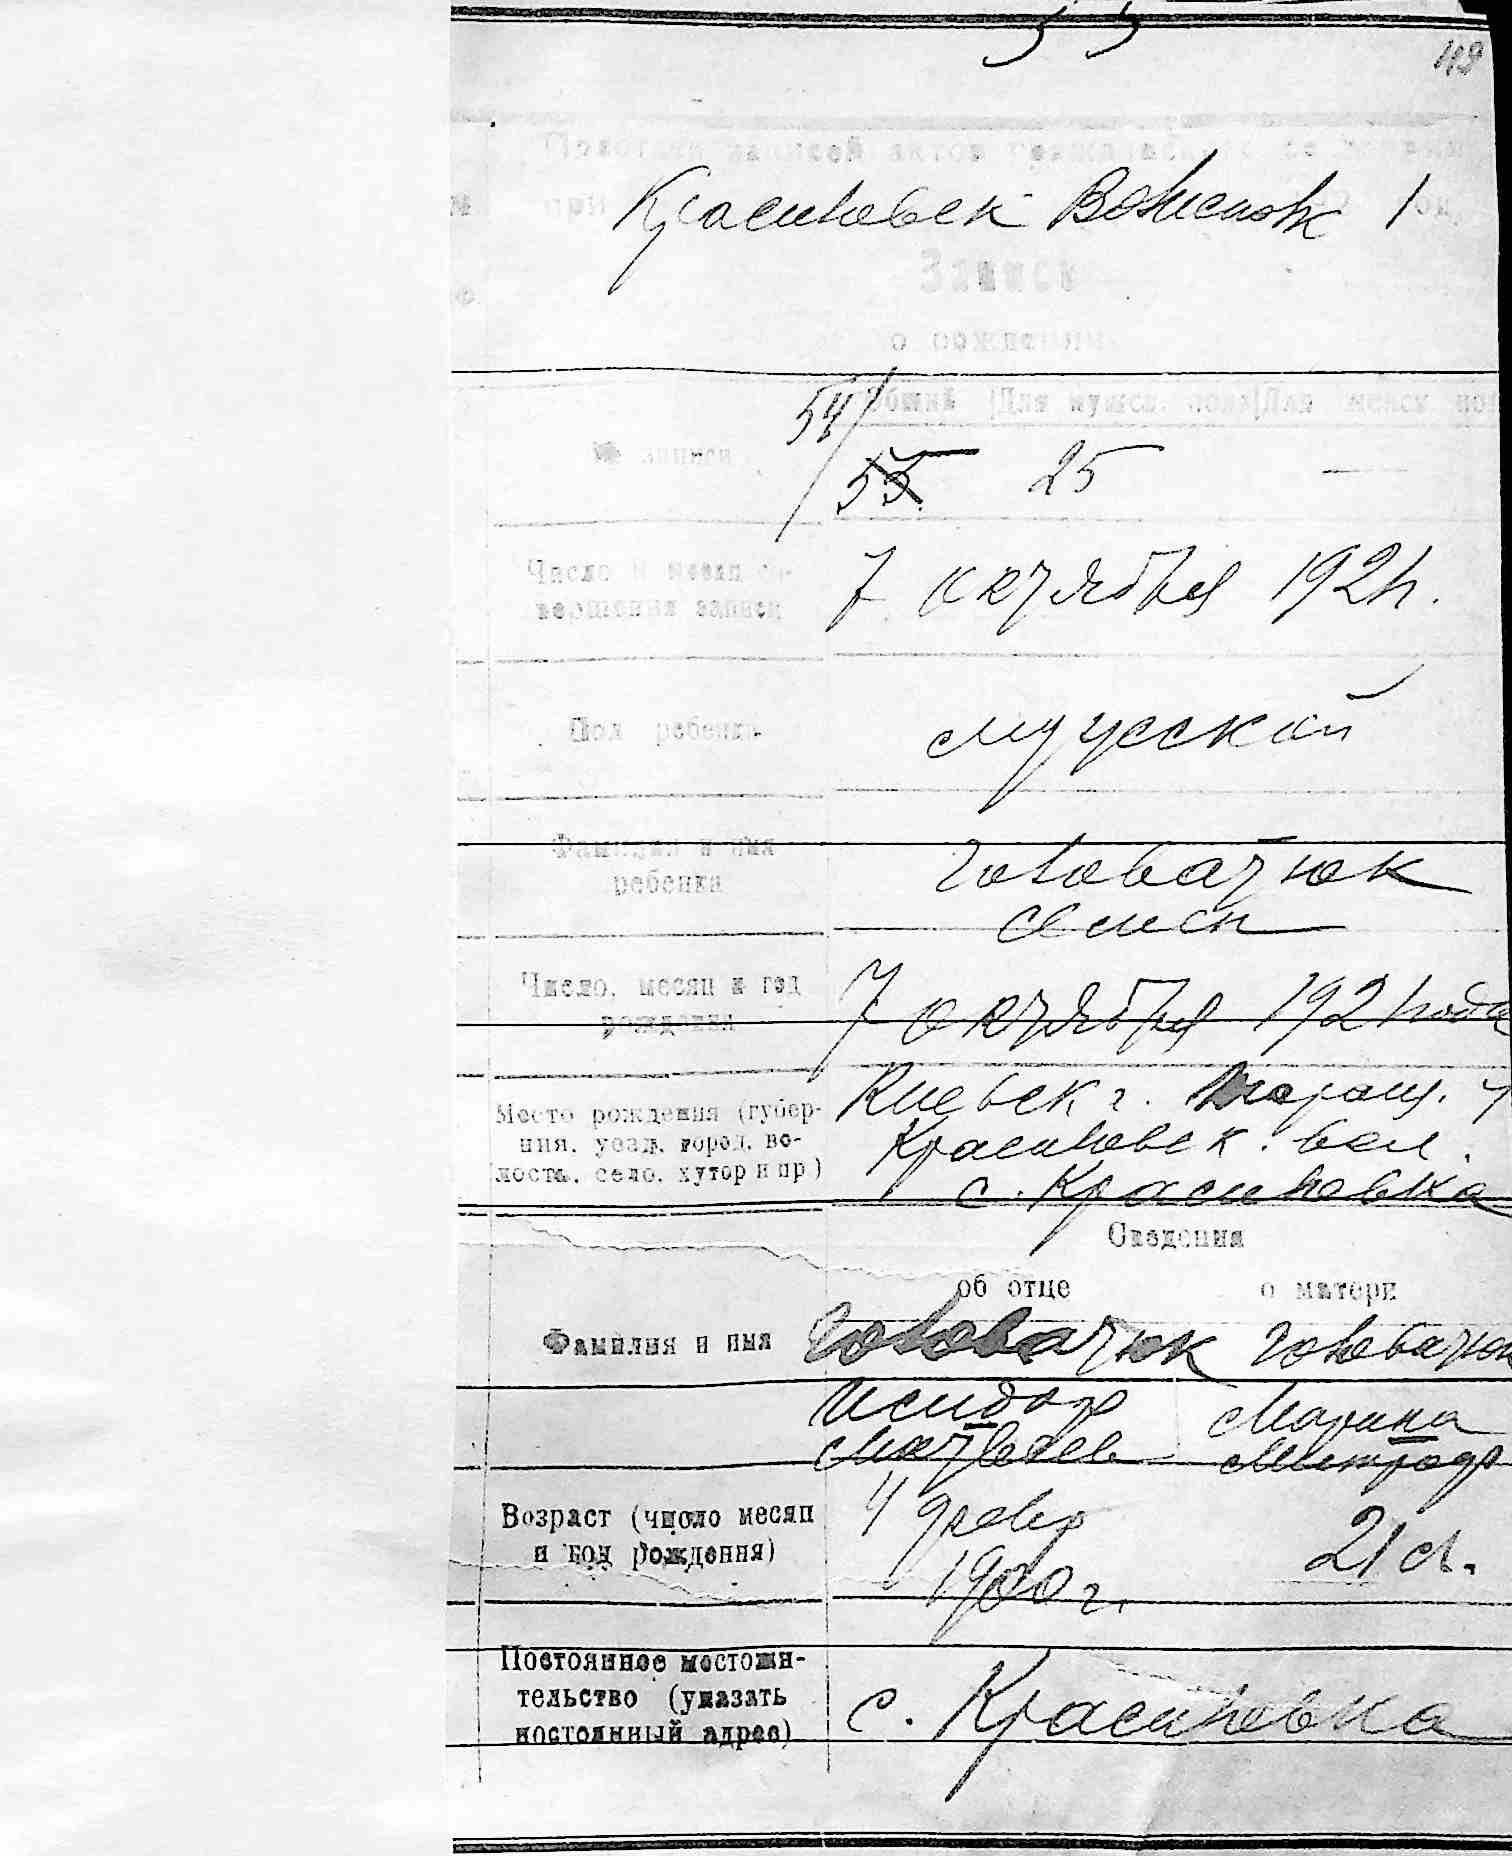 55
49
Протокол записей актов гражданского состояния
при Красиловск Волисполк 1 год.
Запись
о рождении
Общий Для мужск. пола Для женск. пол
№ записи 54/ 55. 25 —
Число и месяц со-
вершения записи
7 октября 1921г.
Пол ребенка мужской
Фамилия и имя
ребенка
Головатюк
Семен
Число, месяц и год
рождения
7 октября 1921 года
Место рождения (губер-
ния, уезд, город, во-
лость, село, хутор и пр)
Киевск г. Таращ. у
Красиловск. вол.
с. Красиловка
Сведения
об отце о матери
Фамилия и имя Головатюк Головатюк
Исидор Марина
Матвеев Митроф
Возраст (число месяц
и год рождения)
4 февр 21 л.
1900 г.
Постоянное местожи-
тельство (указать
постоянный адрес)
с. Красиловка